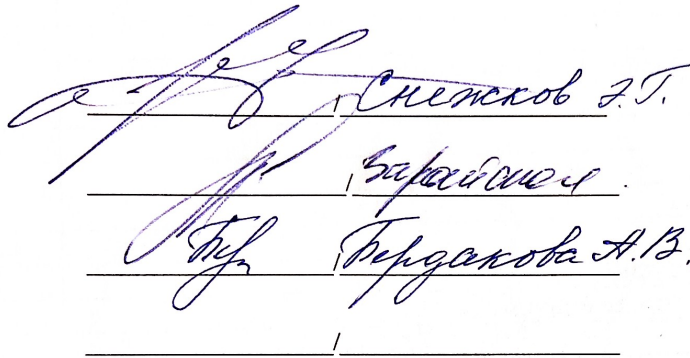 / Снежков Э.Г.
/ Зарайская
/ Бердакова А.В.
/